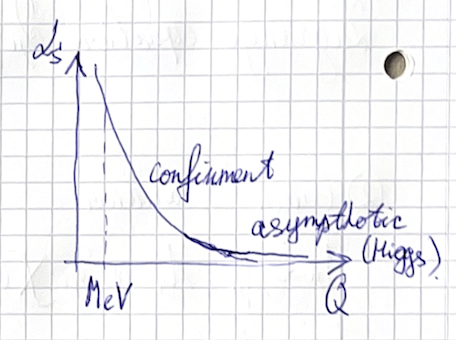 αs
confinment
asymptotic
(Higgs)
MeV
Q